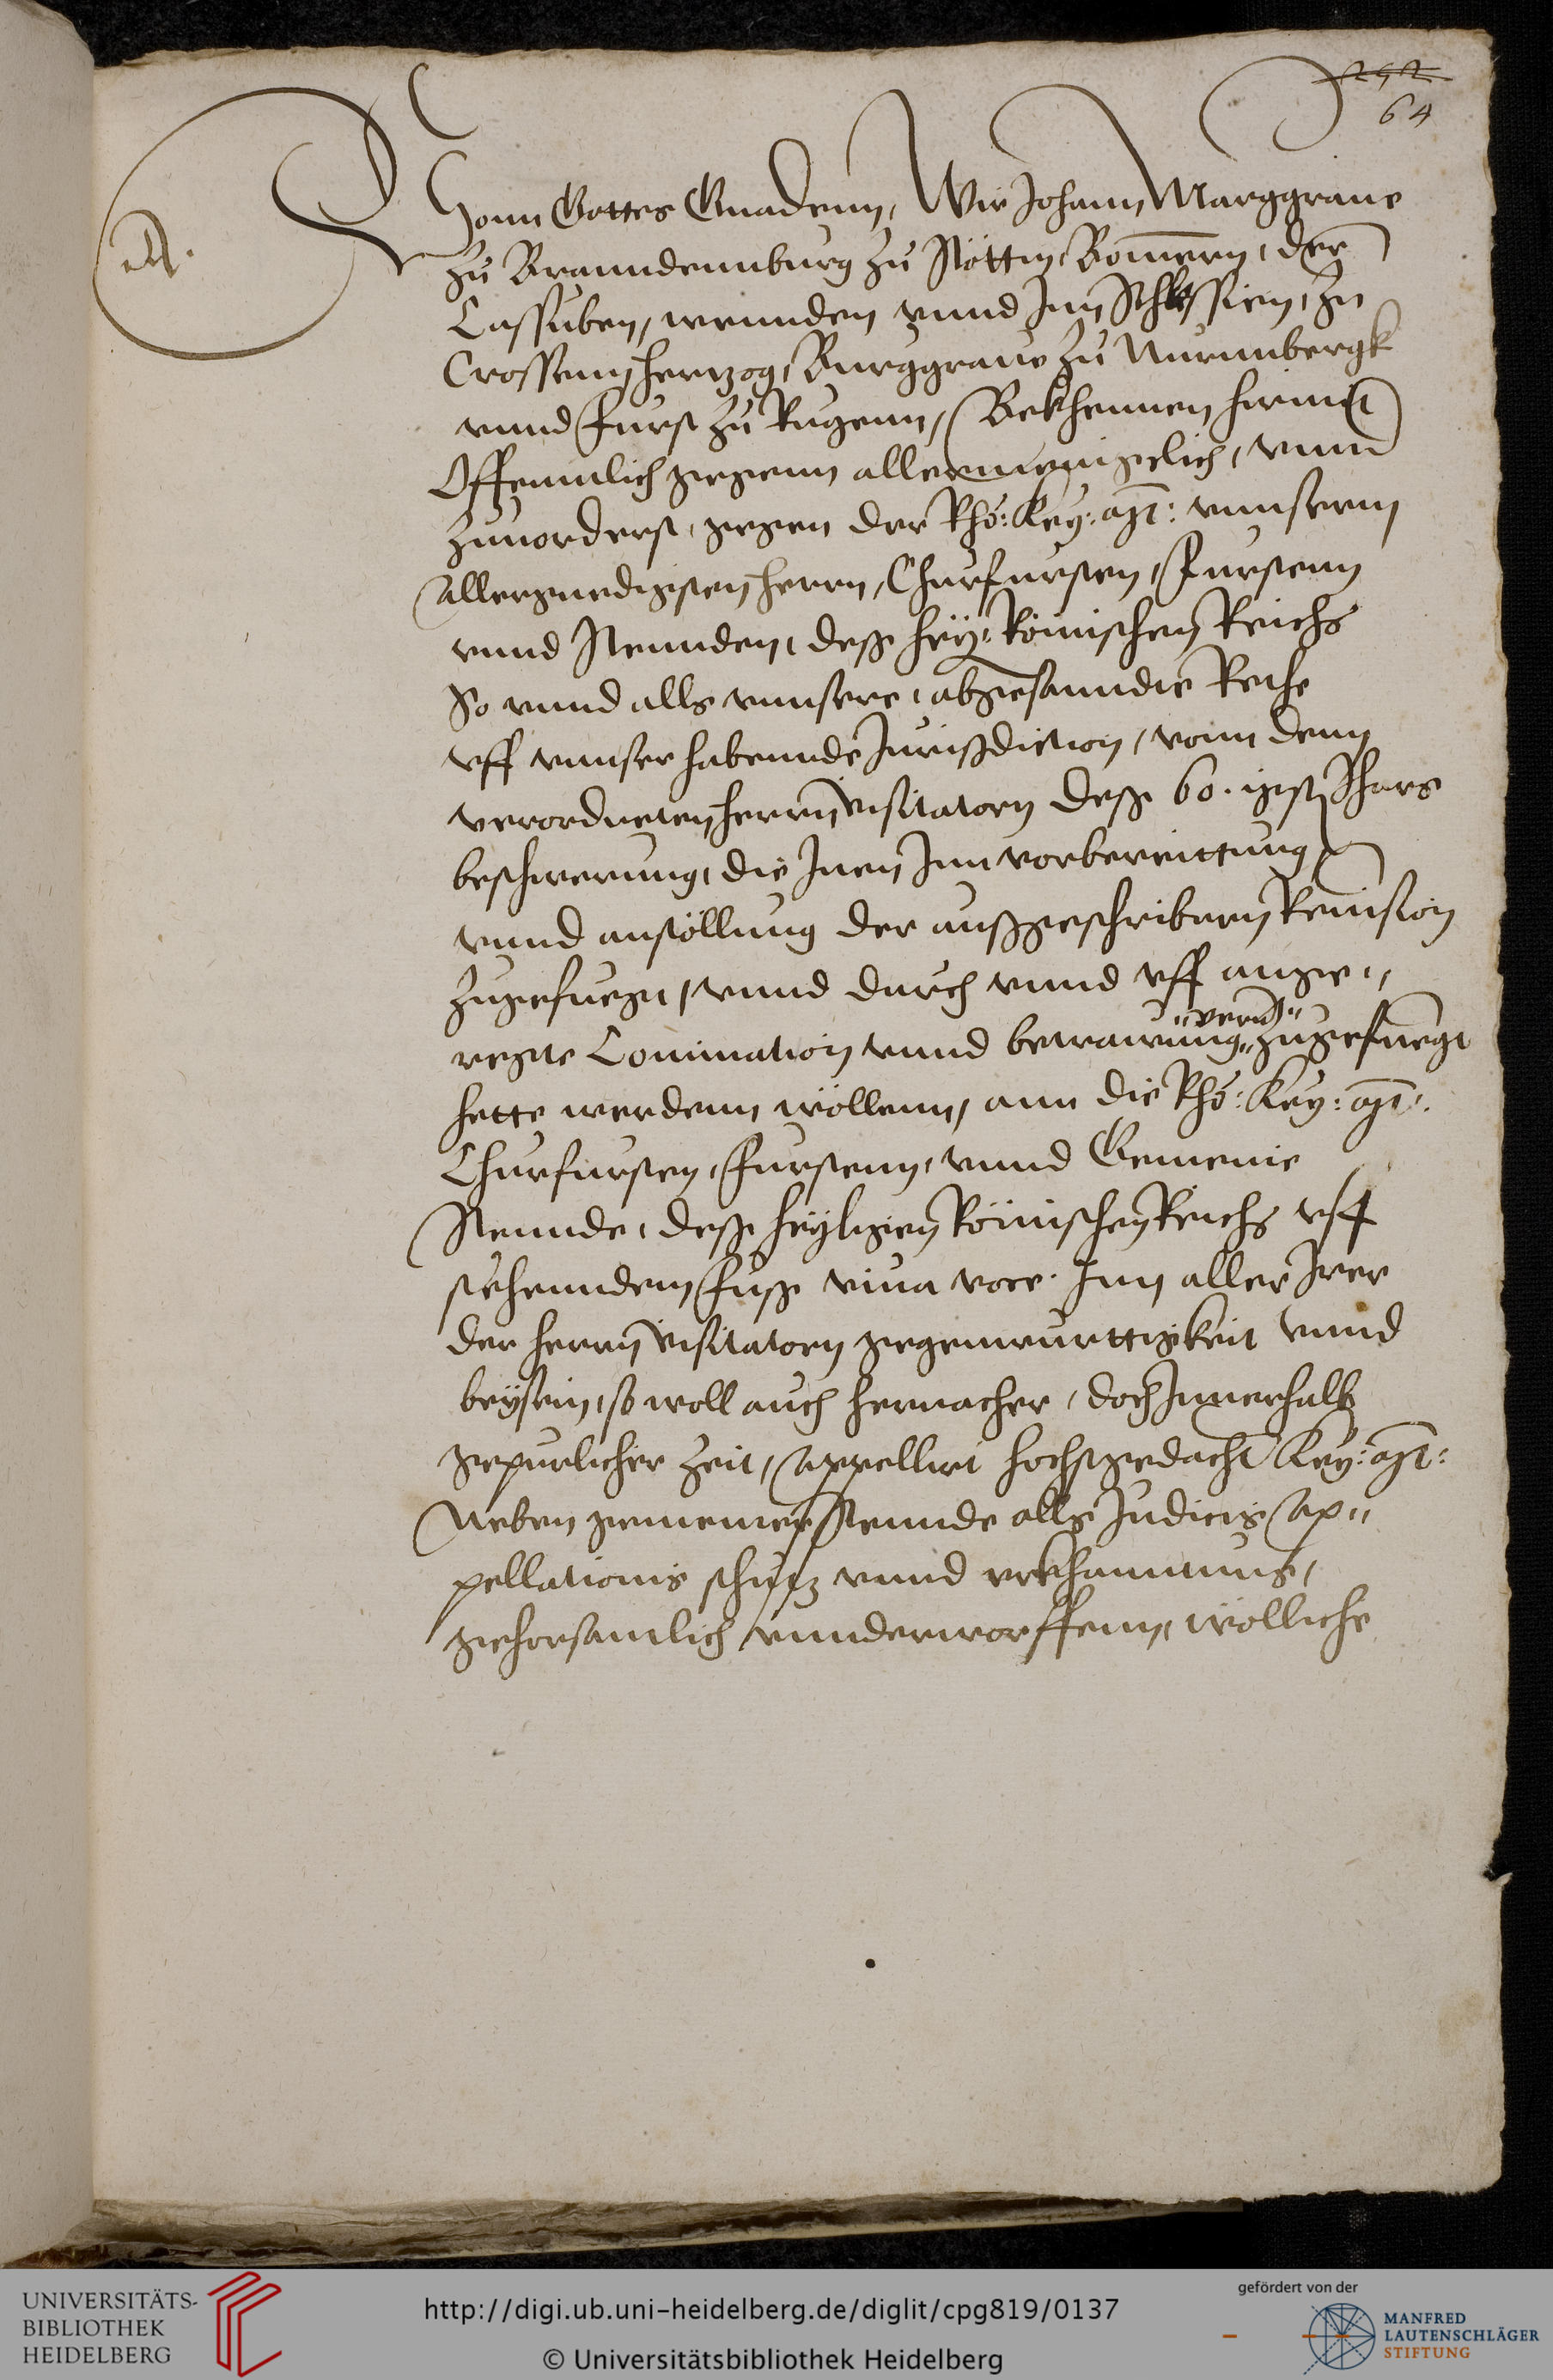 292
64
A.
Vonn Gottes Gnadenn, Wir Johann Marggraue
zu Branndennburg zu Stöttin, Bommern, der
Cassuben, wennden vnnd Inn Schlessien, zu
Crossenn hertzog, Burggraue zu Nurmbergk
vnnd Furst zu Rugenn, Bekhennen hirmit
Offenntlich gegenn allermeniglich, vnnd
zuuorderst, gegen der Rhö: Key: Mt: vnnserm
Allergnedigsten herrn, Churfursten, Fursten
vnnd Stennden, deß hey: Römischen Reichs
So vnnd alls vnnsere, abgesanndte Rethe
vff vnnser habennde Jurißdiction, vonn denn
verordneten herrn Visitatorn deß 60. igst Jhars
beschwerung, die Inen Inn vorbereittung
vnnd anstöllung der außgeschribnen Reuision
zugefuegt, vnnd durch vnnd vff ange„
regte Comination vnnd betrawung „zugefuegt
hette werdenn wöllenn, ann die Rhö: Key: Mt:
Churfursten, Furstenn, vnnd Gemeine
Stennde, deß heyligen Römischen Reichs vff
stehenndem Fuß viua voce. Inn aller Irer
der herrn Visitatorn gegenwurttigkeit vnnd
beysein, so woll auch hernacher, doch Innerhalb
gepurlicher Zeit, Appellirt hochstgedacht Key: Mt:
Neben gemeiner Stennde alls Judicis Ap„
pellationis schutz vnnd erkhanntnus,
gehorsamlich vnnderworffenn, wölliche
UNIVERSITÄTS-
BIBLIOTHEK
HEIDELBERG
http://digi.ub.uni-heidelberg.de/diglit/cpg819/0137
© Universitätsbibliothek Heidelberg
gefördert von der
MANFRED
LAUTENSCHLÄGER
STIFTUNG